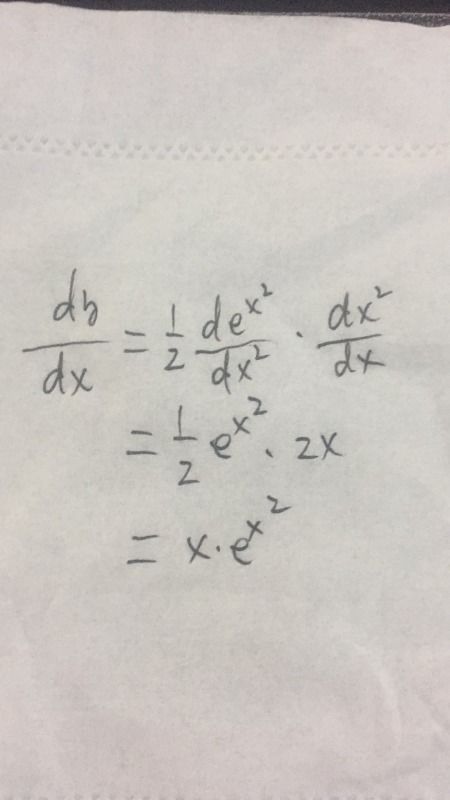 dy/dx = 1/2 de^{x^2}/dx^2 · dx^2/dx
= 1/2 e^{x^2} · 2x
= x · e^{x^2}